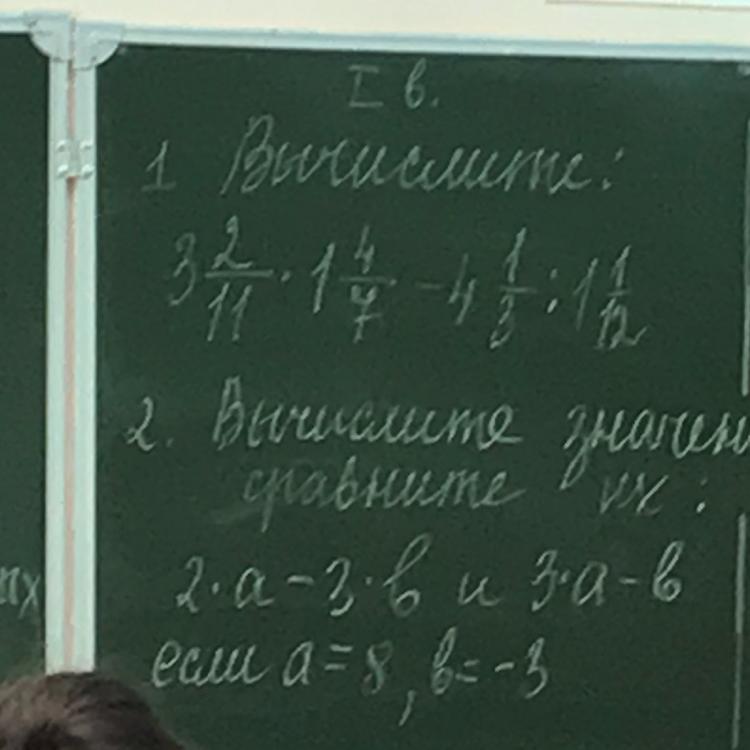 I в.
1 Вычислите:
3 2/11 · 1 4/7 - 4 1/3 : 1 1/12
2. Вычислите значен
сравните их:
2·a-3·b и 3·a-b
если a=8, b=-3
ых